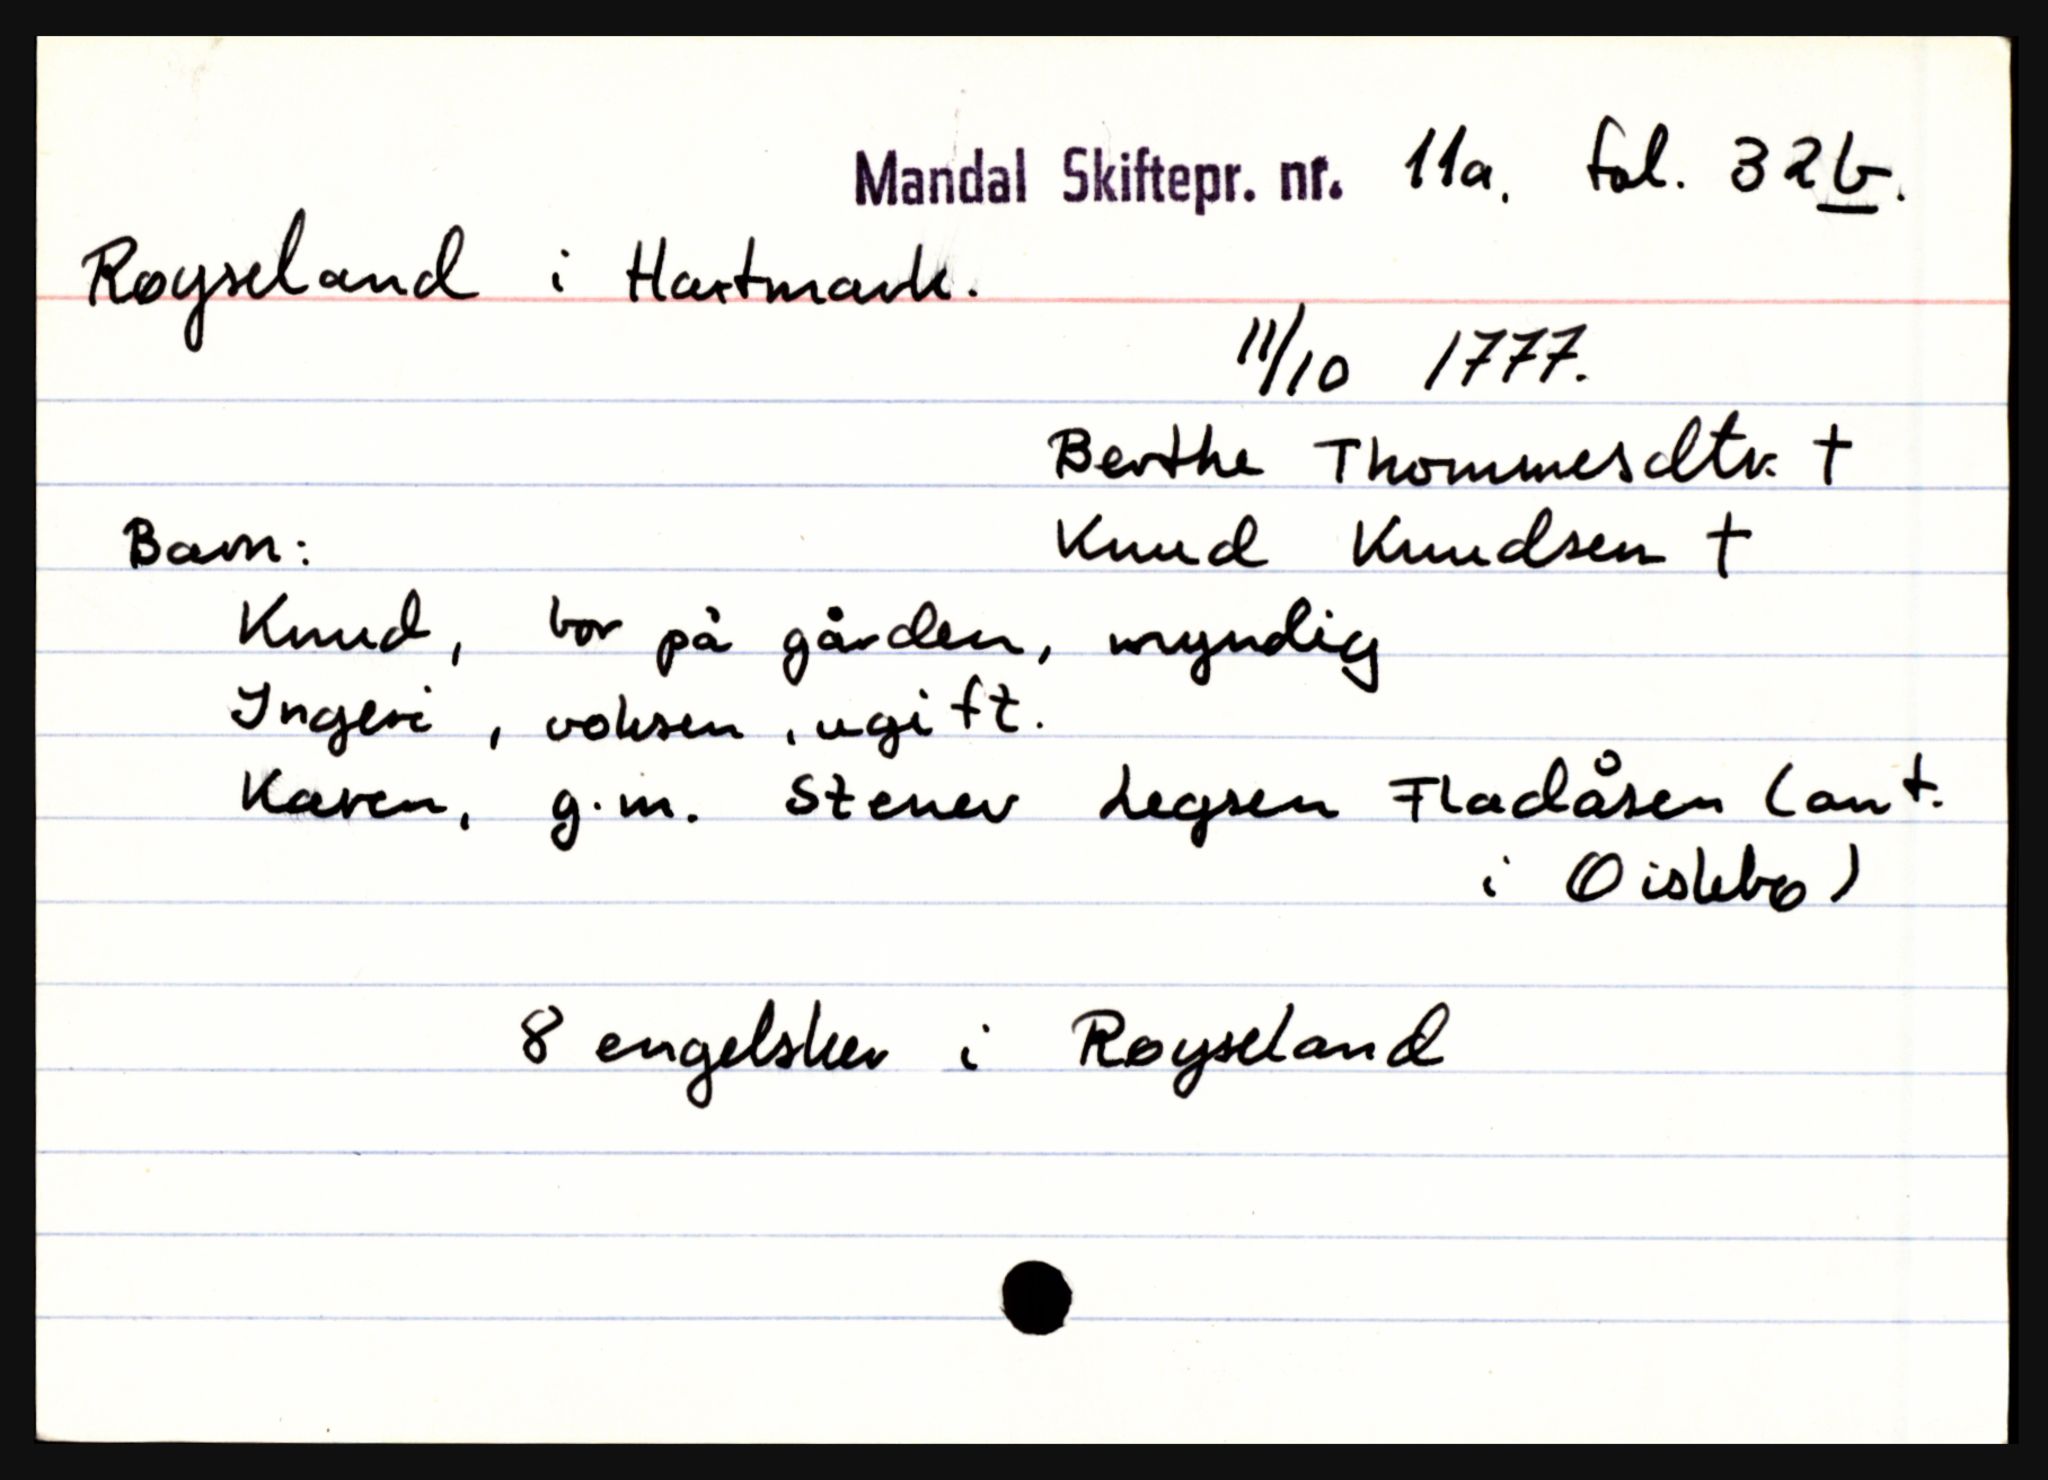 Mandal Skiftepr. nr. 11a. fol. 32b.
Røyseland i Hartmark.
11/10 1777.
Berthe Thommesdtr. †
Barn: Knud Knudsen †
Knud, bor på gården, myndig
Ingeri, voksen, ugift.
Karen, g.m. Stener Legsen Fladåsen (ant.
i Øislebø)
8 engelsker i Røyseland